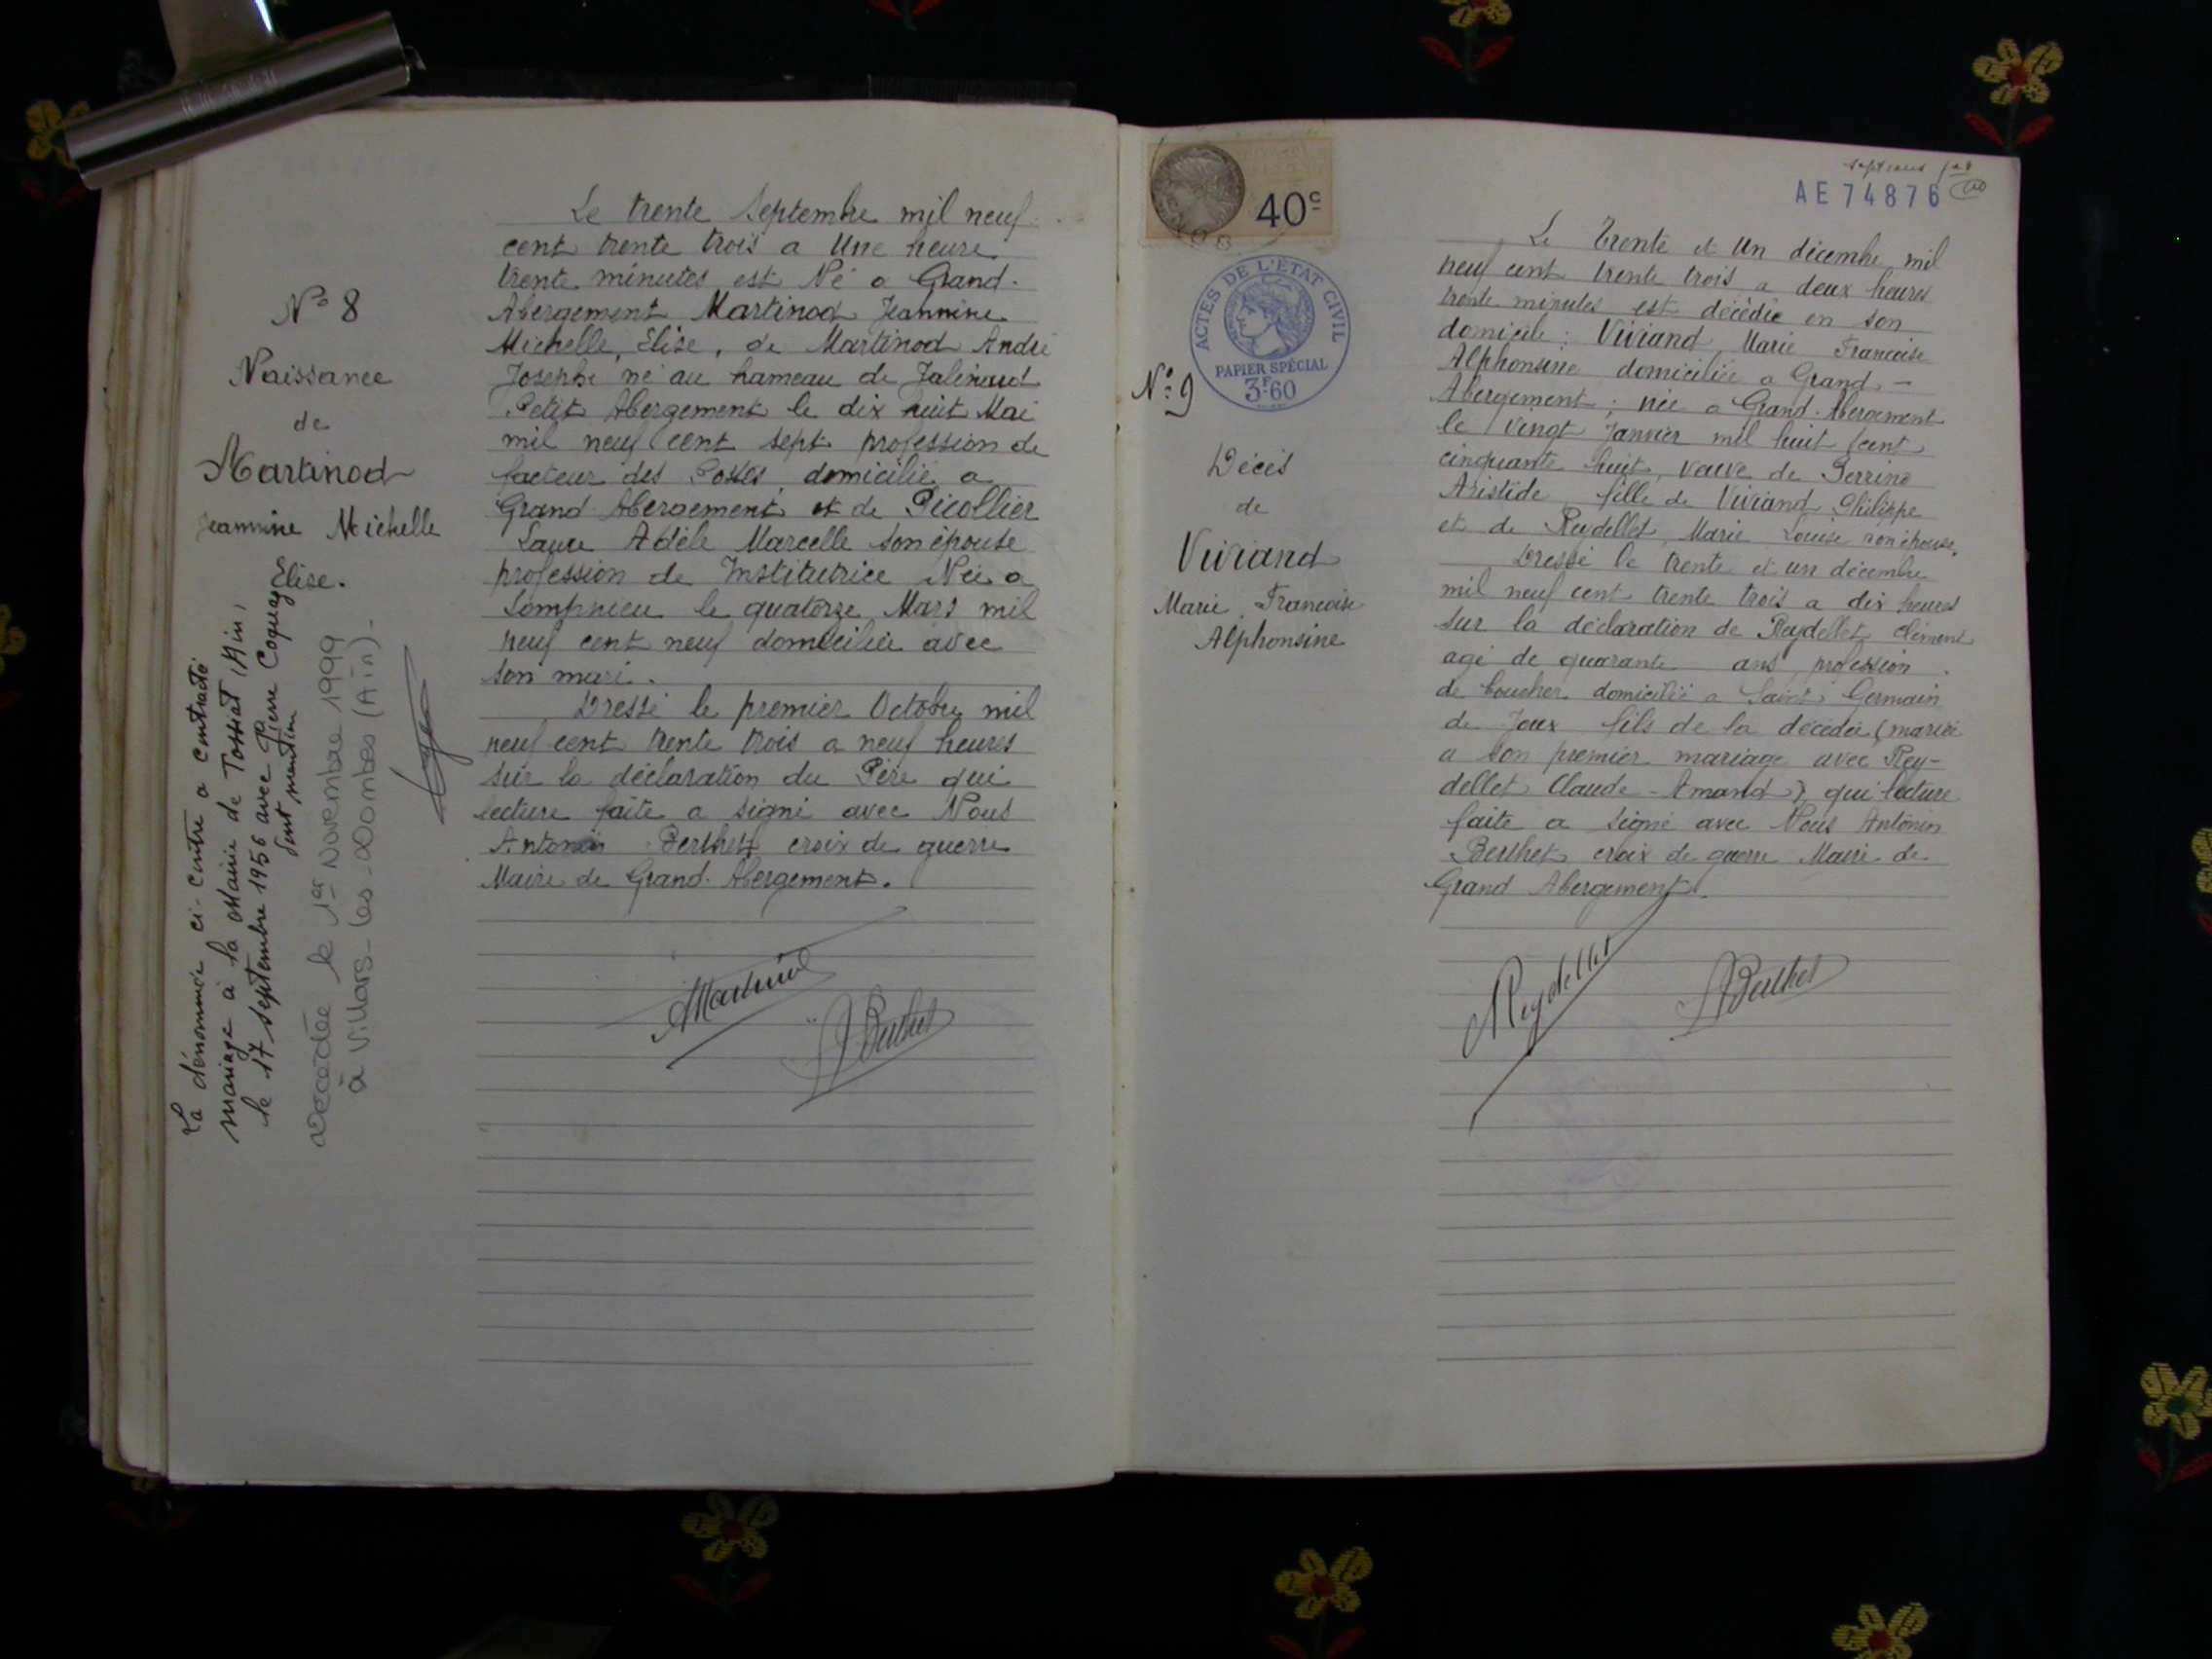 N° 8
Naissance
de
Martinod
Jeannine Michelle
Elise.
La dénommée ci-contre a contracté
mariage à la Mairie de Tossiat (Ain)
le 17 septembre 1956 avec Pierre
dont mention
Décédée le 1er Novembre 1999
à Villars-les-Dombes (Ain).
Le trente Septembre mil neuf
cent trente trois a Une heure
trente minutes est Né a Grand-
Abergement Martinod Jeannine
Michelle, Elise, de Martinod André
Joseph né au hameau de
Petit Abergement le dix huit Mai
mil neuf cent sept profession de
facteur des Postes domicilié a
Grand Abergement et de Picollier
Laure Adèle Marcelle son épouse
profession de Institutrice Née a
le quatorze Mars mil
neuf cent neuf domiciliée avec
son mari.
Dressé le premier Octobre mil
neuf cent trente trois a neuf heures
sur la déclaration du Père qui
lecture faite a signé avec Nous
Antonin Berthet croix de guerre
Maire de Grand-Abergement.
AMartinod
ABerthet
40c
ACTES DE L'ÉTAT CIVIL
PAPIER SPÉCIAL
3F60
AE 74876
N° 9
Décès
de
Viviand
Marie Francoise
Alphonsine
Le Trente et Un décembre mil
neuf cent trente trois a deux heures
trente minutes est décédée en son
domicile : Viviand Marie Francoise
Alphonsine domiciliée a Grand-
Abergement ; née a Grand-Abergement
le Vingt Janvier mil huit cent
cinquante huit, veuve de Perrine
Aristide fille de Viviand Philippe
et de Reydellet Marie Louise son épouse.
Dressé le trente et un décembre
mil neuf cent trente trois a dix heures
sur la déclaration de Reydellet Clément
agé de quarante ans profession
de boucher domicilié a Saint Germain
de Joux fils de la décédée (mariée
a son premier mariage avec Rey-
dellet Claude-Amand) qui lecture
faite a signé avec Nous Antonin
Berthet croix de guerre Maire de
Grand Abergement.
Reydellet
ABerthet